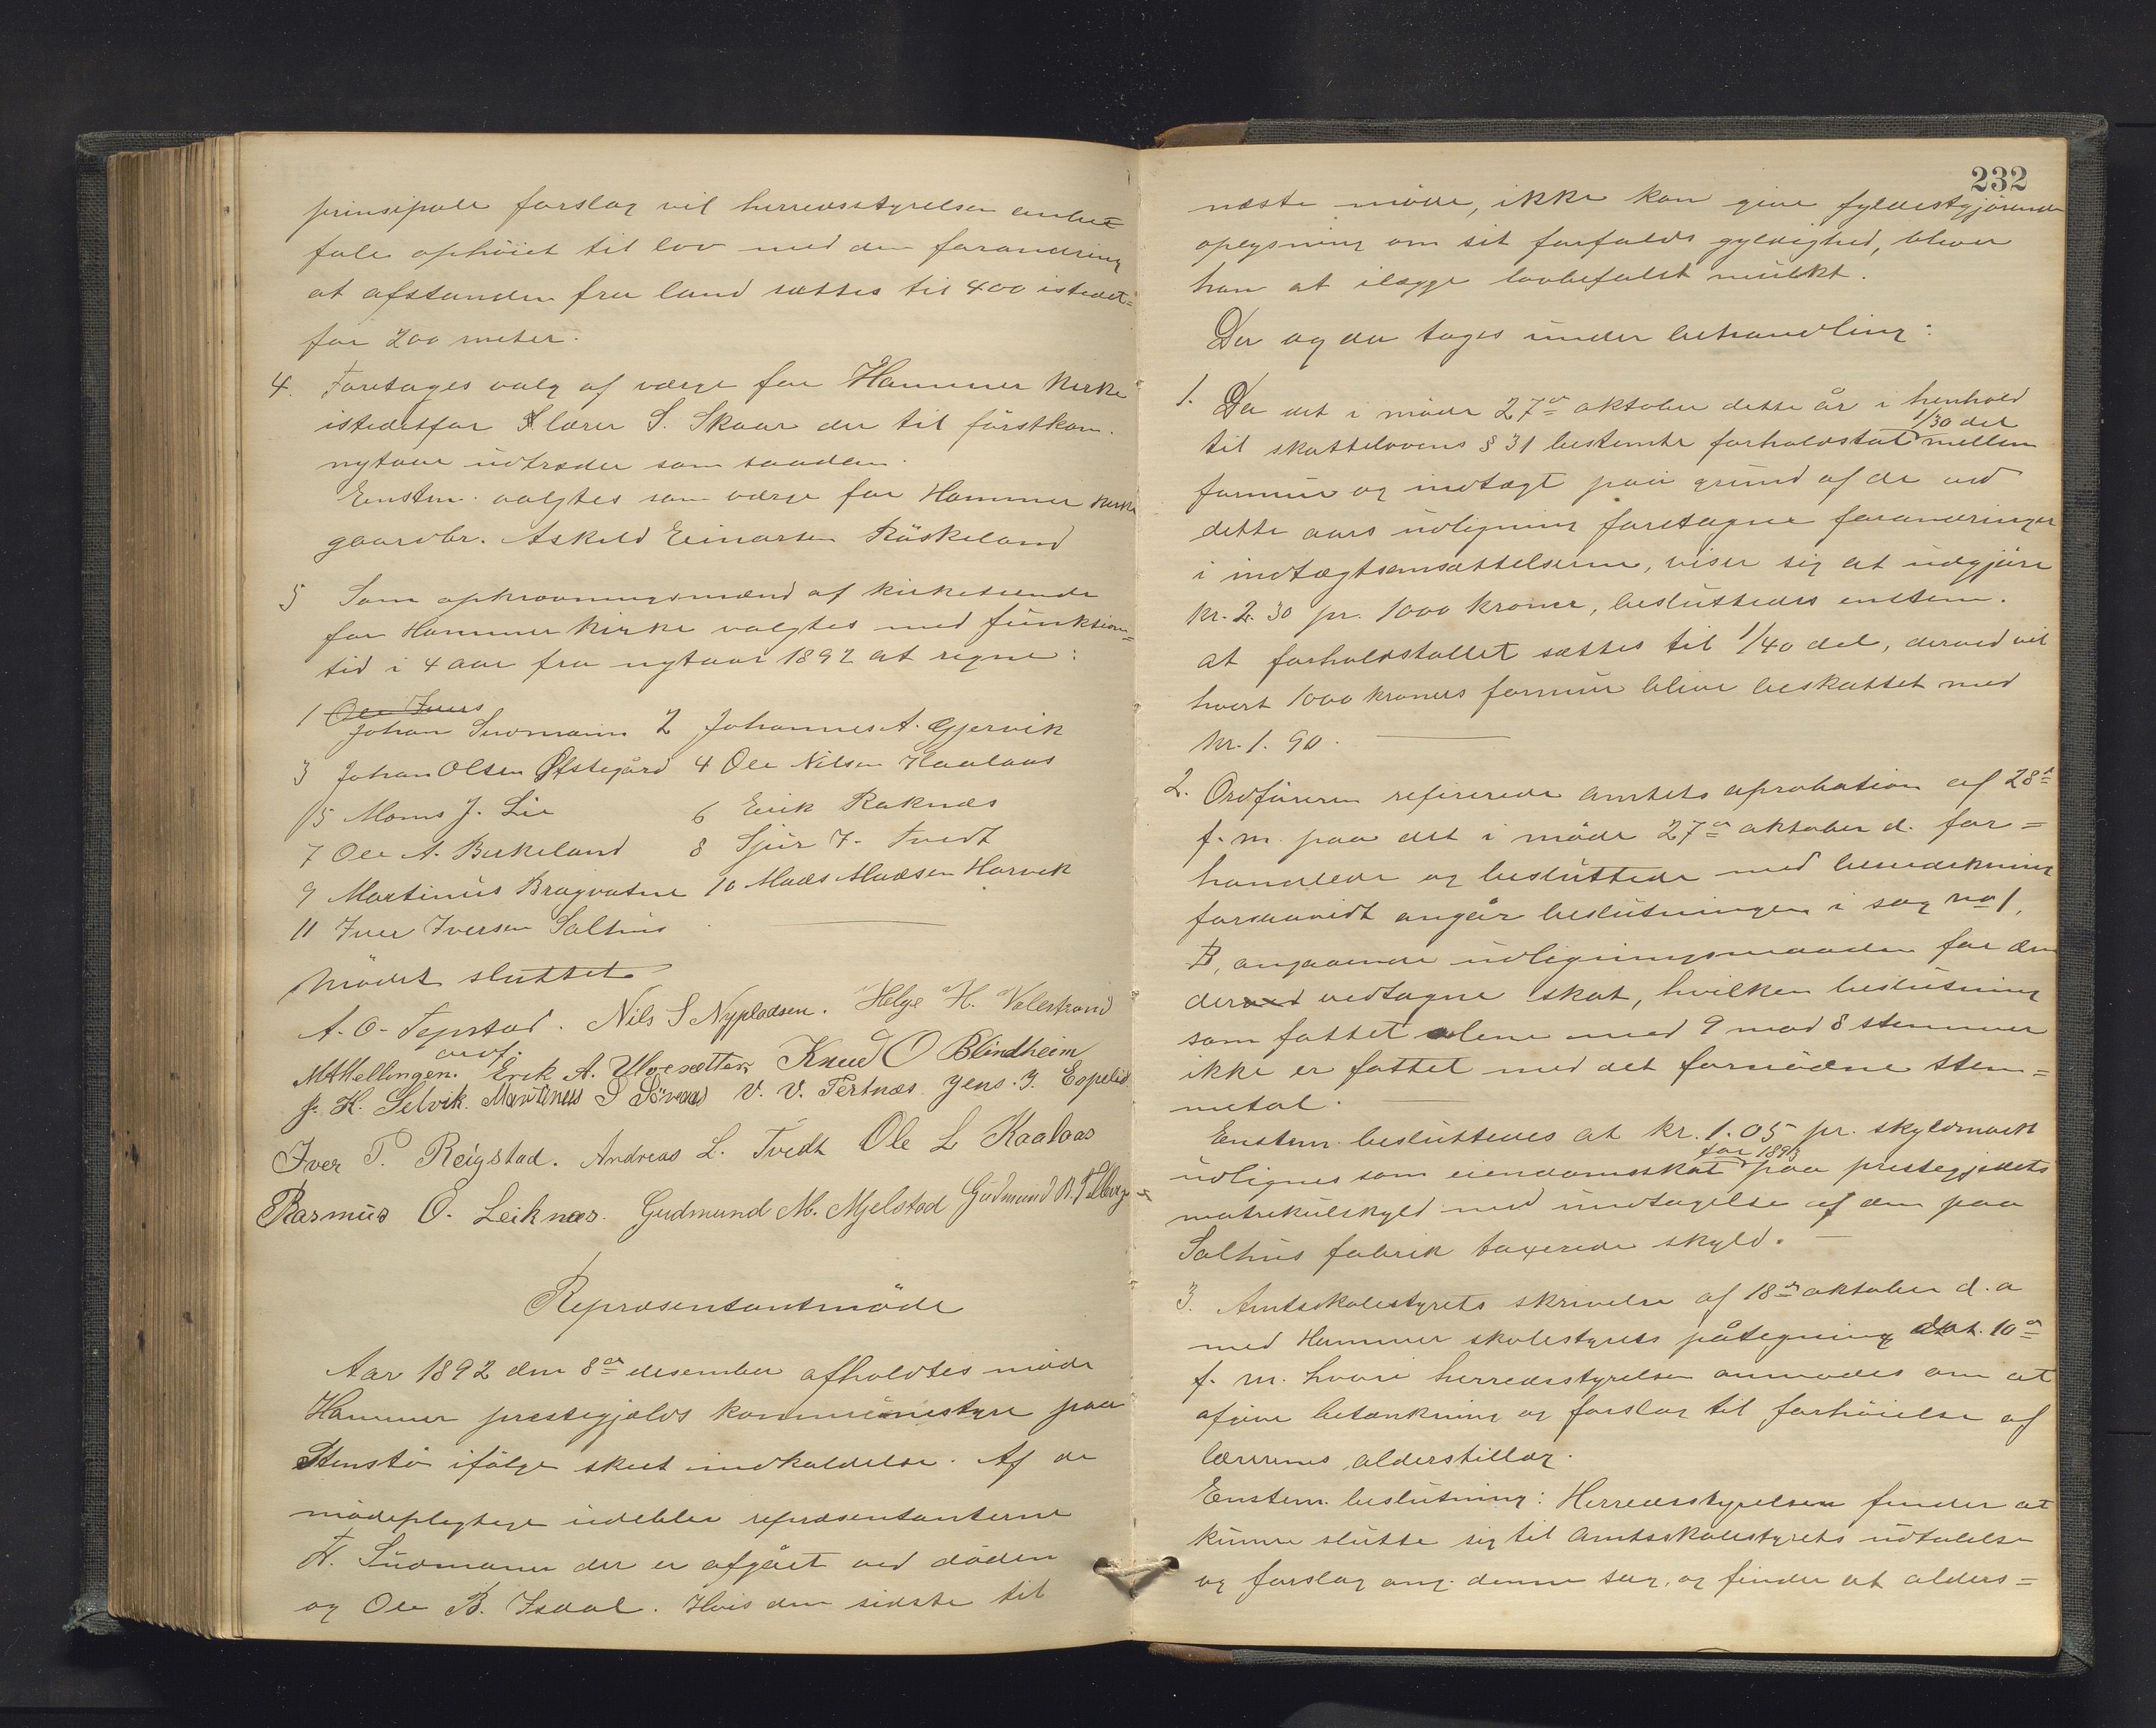 prinsipale forslag vil herredsstyrelsen anbe=
fale ophöiet til lov med den forandring
at afstanden fra land sættes til 400 istedet=
for 200 meter.
4. Foretages valg af værge for Hammer kirke
istedetfor Slærer S. Skaar der til förstkom.
nytaar udtræder som saadan.
Enstem. valgtes som værge for Hammer kirke
gaardbr. Askild Einarsen Röskeland
5 Som opkrævningsmænd af kirketiende
for Hammer kirke valgtes med funktions=
tid i 4 aar fra nytaar 1892 at regne:
1 Ole Ivers
Johan Sudmann 2 Johannes A. Gjervik
3 Johan Olsen Øfstegård 4 Ole Nilsen Kaalaas
5 Mons J. Lie 6 Erik Raknæs
7 Ole A. Birkeland 8 Sjur J. Tvedt
9 Martinus Bragvatne 10 Mads Madsen Horvik
11 Iver Iversen Salhus
Mödet sluttet
A. O. Tepstad. Nils S Nypladsen. Helge H. Valestrand
ordf.
M A Mellingen. Erik A. Ulvesætter. Knud O Blindheim
J. H. Selvik. Martinus S Sörnæs V. V. Tertnæs Jens. J. Espelid
Iver P. Reigstad. Andreas L. Tvedt Ole L Kaalaas
Rasmus O. Leiknæs. Gudmund M. Mjelstad Gudmund N.
Repræsentantmöde
Aar 1892 den 8de desember afholdtes möde
Hammer præstegjælds kommunestyre paa
Stenstö ifölge skeet indkaldelse. Af de
mödepligtige udeblev repræsentanterne
H. Sudmann der er afgået ved döden
og Ole B. Isdal. Hvis den sidste til
232
næste möde, ikke kan give fyldestgjörende
oplysning om sit forfalds gyldighed, bliver
han at ilægge lovbefalet mulkt.
Der og da toges under behandling:
1. Da det i möde 27de oktober dette år i henhold
1/30 del
til skattelovens § 31 bestemte forholdstal mellem
formue og indtægt paa grund af de ved
dette aars udligning foretagne forandringer
i indtægtsansættelserne, viser sig at udgjöre
kr. 2.30 pr. 1000 kroner, besluttedes enstem.
at forholdstallet sættes til 1/40 del, derved vil
hvert 1000 kroners formue blive beskattet med
kr. 1.90.
2. Ordföreren refererede amtets aprobation af 28de
f. m. paa det i möde 27de oktober d. for=
handlede og besluttede med bemærkning
forsaavidt angår beslutningen i sag no 1,
B, angaaende udligningsmaaden for den
derved vedtagne skat, hvilken beslutning
som fattet alene med 9 mod 8 stemmer
ikke er fattet med det fornödne stem=
metal.
Enstem. besluttedes at kr. 1.05 pr. skyldmark
for 1893
udlignes som eiendomsskat paa prestegjeldets
matrikulskyld med undtagelse af den paa
Salhus fabrik taxerede skyld.
3. Amtsskolestyrets skrivelse af 18de oktober d. a
med Hammer skolestyrets påtegning dat. 10de
f. m. hvori herredsstyrelsen anmodes om at
afgive betænkning og forslag til forhöielse af
lærernes alderstillæg.
Enstem. beslutning: Herredsstyrelsen finder at
kunne slutte sig til Amtsskolestyrets udtalelse
og forslag ang. denne sag, og finder at alders=